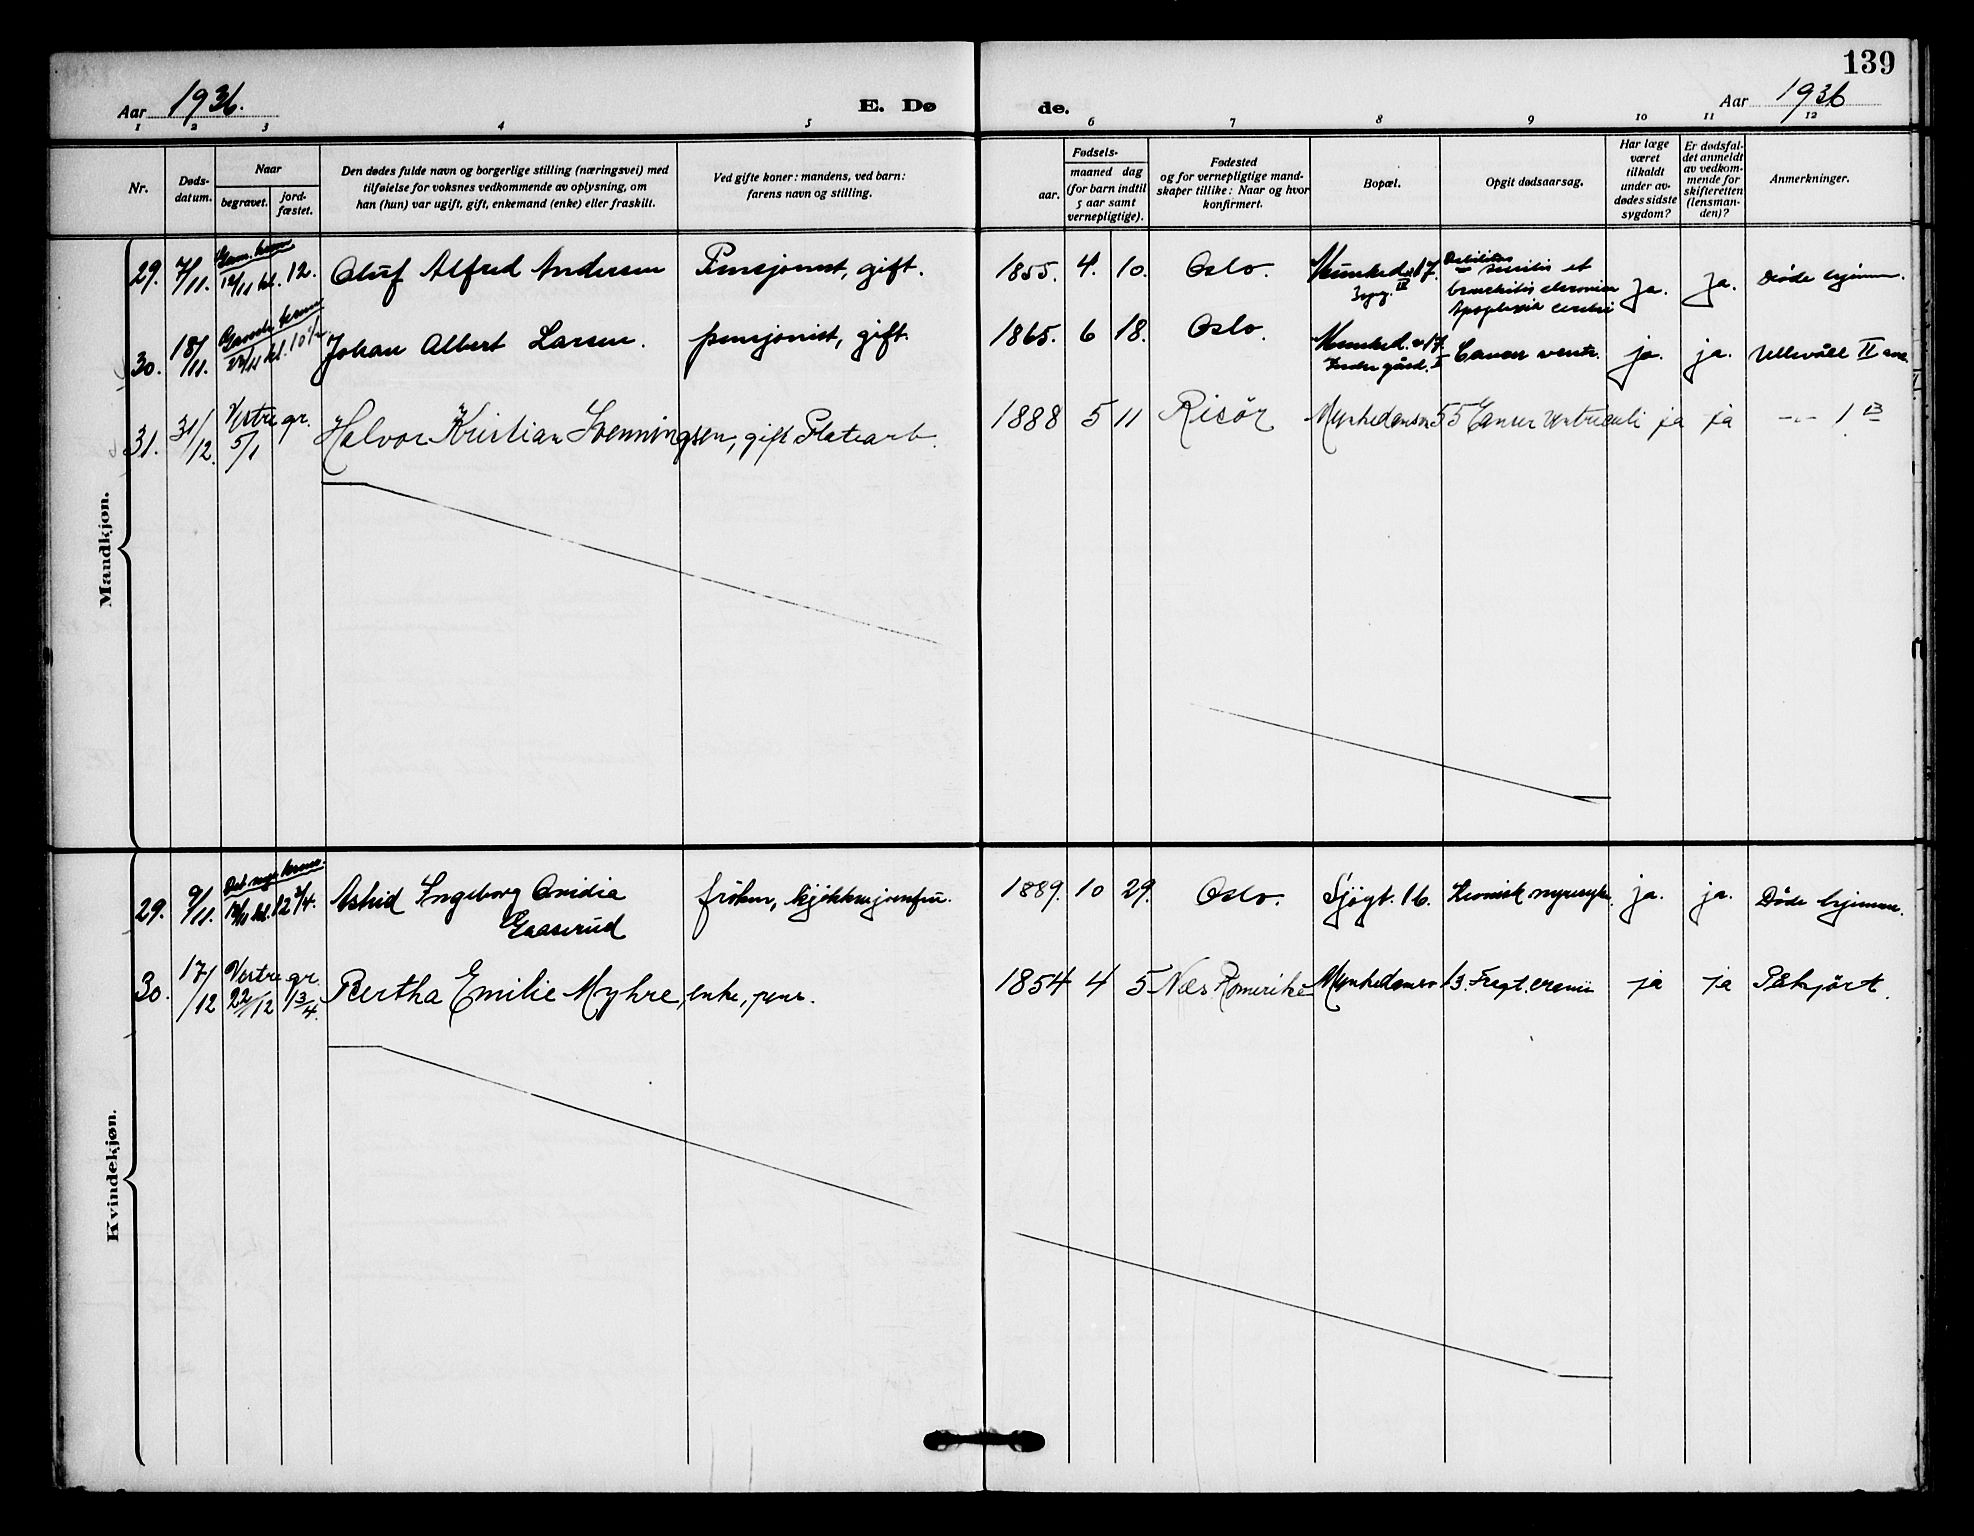 139
Aar 1936. E. Dø de. Aar 1936
1 2 3 4 5 6 7 8 9 10 11 12
Nr.
Døds-
datum.
Naar
begravet.
jord-
fæstet.
Den dødes fulde navn og borgerlige stilling (næringsvei) med
tilføielse for voksnes vedkommende av oplysning, om
han (hun) var ugift, gift, enkemand (enke) eller fraskilt.
Ved gifte koner: mandens, ved barn:
farens navn og stilling.
Fødsels-
aar.
maaned dag
(for barn indtil
5 aar samt
vernepligtige).
Fødested
og for vernepligtige mand-
skaper tillike: Naar og hvor
konfirmert.
Bopæl.
Opgit dødsaarsag.
Har læge
været
tilkaldt
under av-
dødes sidste
sygdom?
Er dødsfal-
det anmeldt
av vedkom-
mende for
skifteretten
(lensman-
den)?
Anmerkninger.
Mandkjøn.
Gam. krem
29. 7/11. 12/11 kl. 12. Oluf Alfred Andersen Pensjonist, gift. 1855. 4. 10. Oslo. Munked.v 17. IV
Debilitas senilis et
bronchitis chronica
Apoplexia cerebri
Ja. Ja. Døde hjemme.
30. 18/11. Gamle krem 23/11 kl. 10½ Johan Albert Larsen. pensjonist, gift. 1865. 6 18. Oslo. Munked.v 17.
Indre gård. I
Cancer ventr. ja. ja. Ullevåll II avd.
31. 31/12. Vestre gr. 5/1 Halvor Kristian Svenningsen, gift Platearb. 1888 5 11 Risör Munkedamsv 55 Cancer Ventriculi ja ja -"- 1 13
Kvindekjøn.
Det nye krem.
29. 9/11. 13/11 kl. 12 3/4. Astrid Ingeborg Ovidia
Gaaserud
fröken, kjökkenjomfru. 1889. 10 29. Oslo. Sjögt. 16. Kronisk nyresyke. ja. ja. Døde hjemme.
30. 17/12 Vestre gr. 22/12 1 3/4. Bertha Emilie Myhre, enke, pens. 1854 4 5 Næs Romerike Munkedamsv 13. Fragt. cranii ja ja Påkjört.